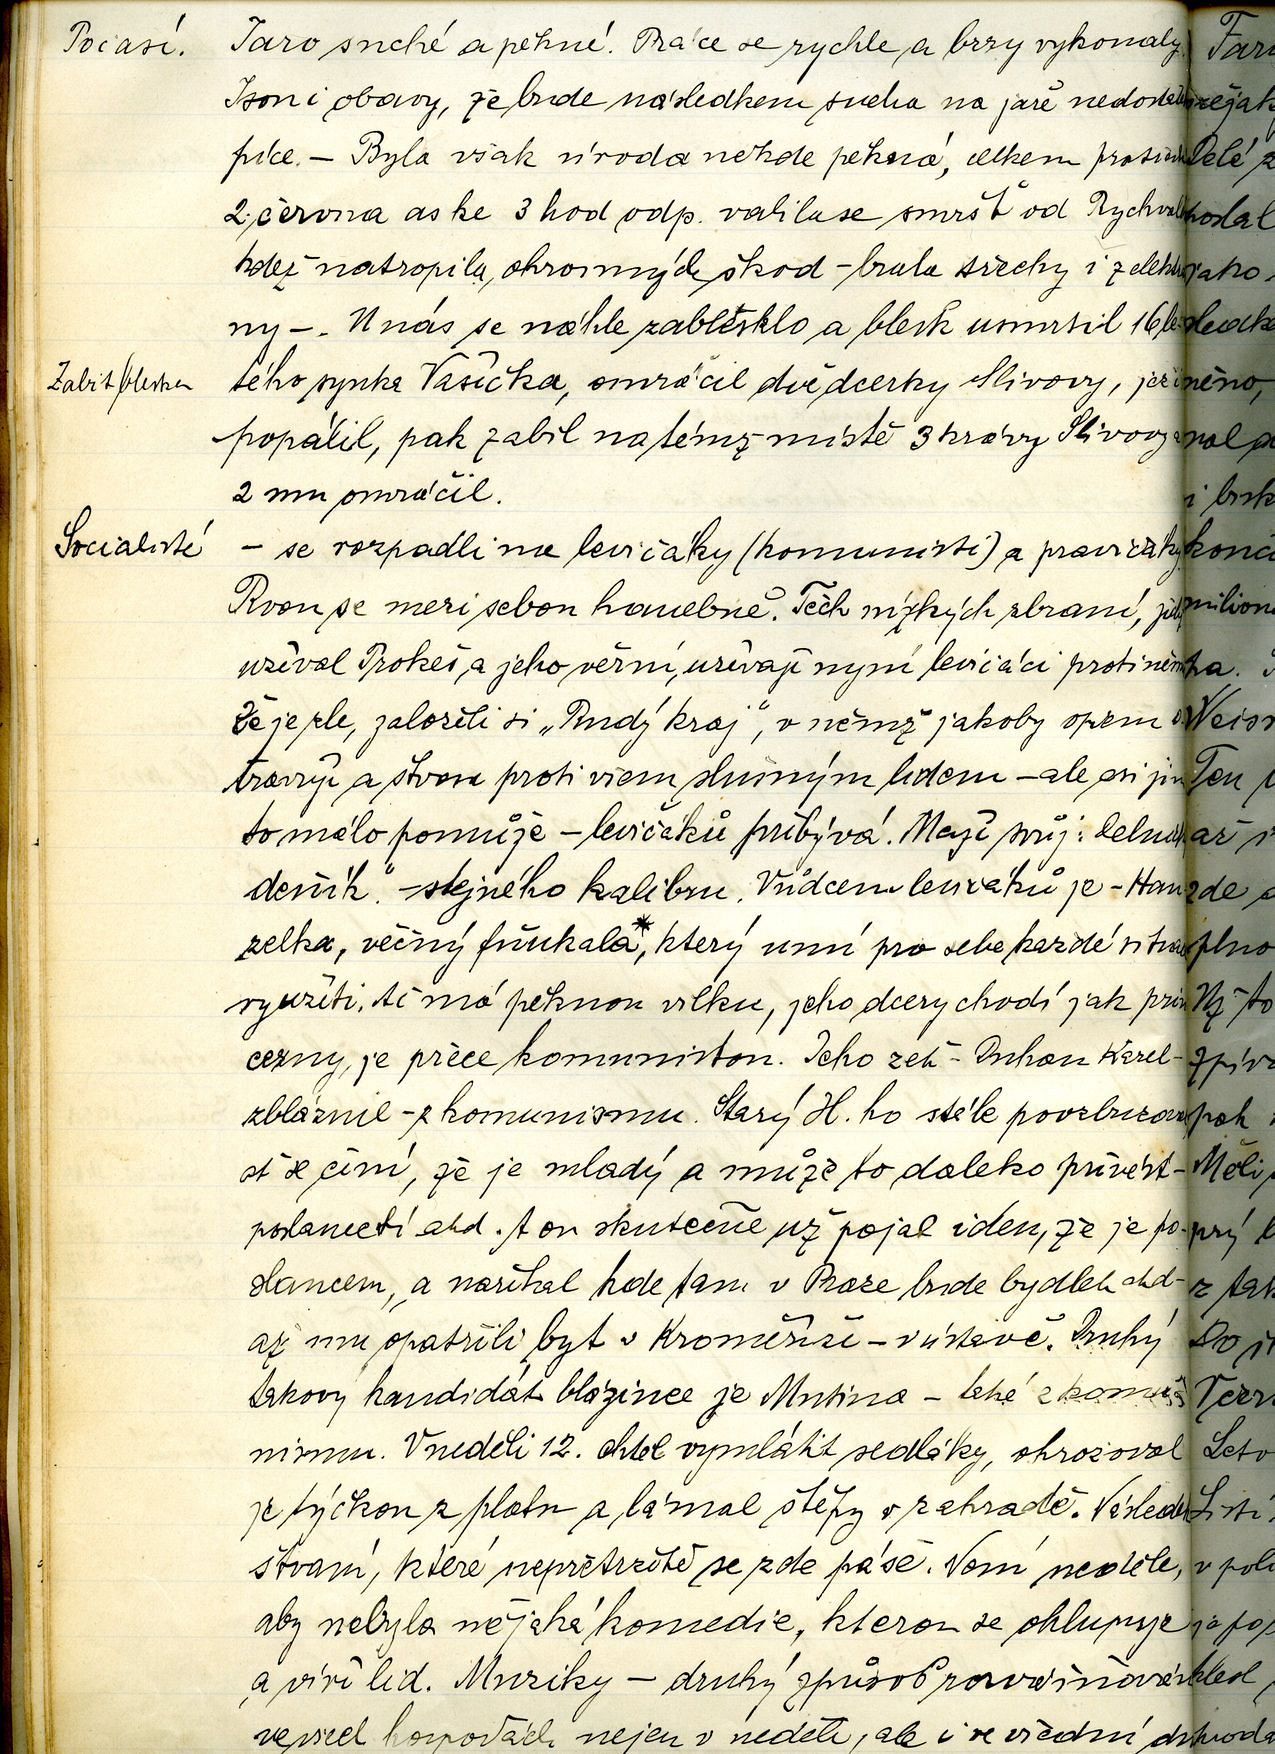 Počasí. Jaro suché a pěkné. Práce se rychle a brzy vykonaly.
Jsou i obavy, že bude následkem sucha na jaře nedostatek
píce. – Byla však úroda někde pěkná, celkem
2. června asi ke 3 hod odp. valila se smršť od Rychvaldu
kdež natropila ohromných škod – brala střechy i
ny –. U nás se náhle zablesklo a blesk usmrtil 16 le-
Zabit bleskem tého synka Vašíčka, omráčil dvě dcerky Slívovy, jež i
popálil, pak zabil na témž místě 3 krávy Slívovy a
2 mu omráčil.
Socialisté – se rozpadli na levičáky (komunisti) a pravičáky
Rvou se mezi sebou hanebně. Těch nízkých zbraní, jichž
užíval Prokeš, a jeho věrní, užívají nyní levičáci proti němu
Že je zle, založili si „Rudý kraj“, v němž jakoby opiem o-
travují a štvou proti všem slušným lidem – ale asi jim
to málo pomůže – levičáků přibývá. Mají svůj: Dělnický
deník“ – stejného kalibru. Vůdcem levičáků je – Han-
zelka, věčný fňukala*, který umí pro sebe každé situace
využíti. Ač má pěknou vilku, jeho dcery chodí jak prin-
cezny, je přece komunistou. Jeho zeť – Duhan Karel –
zbláznil – z komunismu. Starý H. ho stále povzbuzoval
ať se činí, že je mladý a může to daleko přivést –
poslanectví atd. A on skutečně už pojal ideu, že je po-
slancem, a naříkal kde tam v Praze bude bydlet atd –
až mu opatřili byt v Kroměříži – v ústavě. Druhý
takový kandidát blázince je Mutina – také z komu-
nismu. V neděli 12. chtěl vymlátit sedláky, ohrožoval
je tyčkou z plotu a lámal štěpy v zahradě. Následek
štvaní, které nepřetržitě se zde páše. Není neděle,
aby nebyla nějaká komedie, kterou se ohlupuje
a víří lid. Muziky – druhý způsob
ve všech hospodách nejen v neděli, ale i ve všední